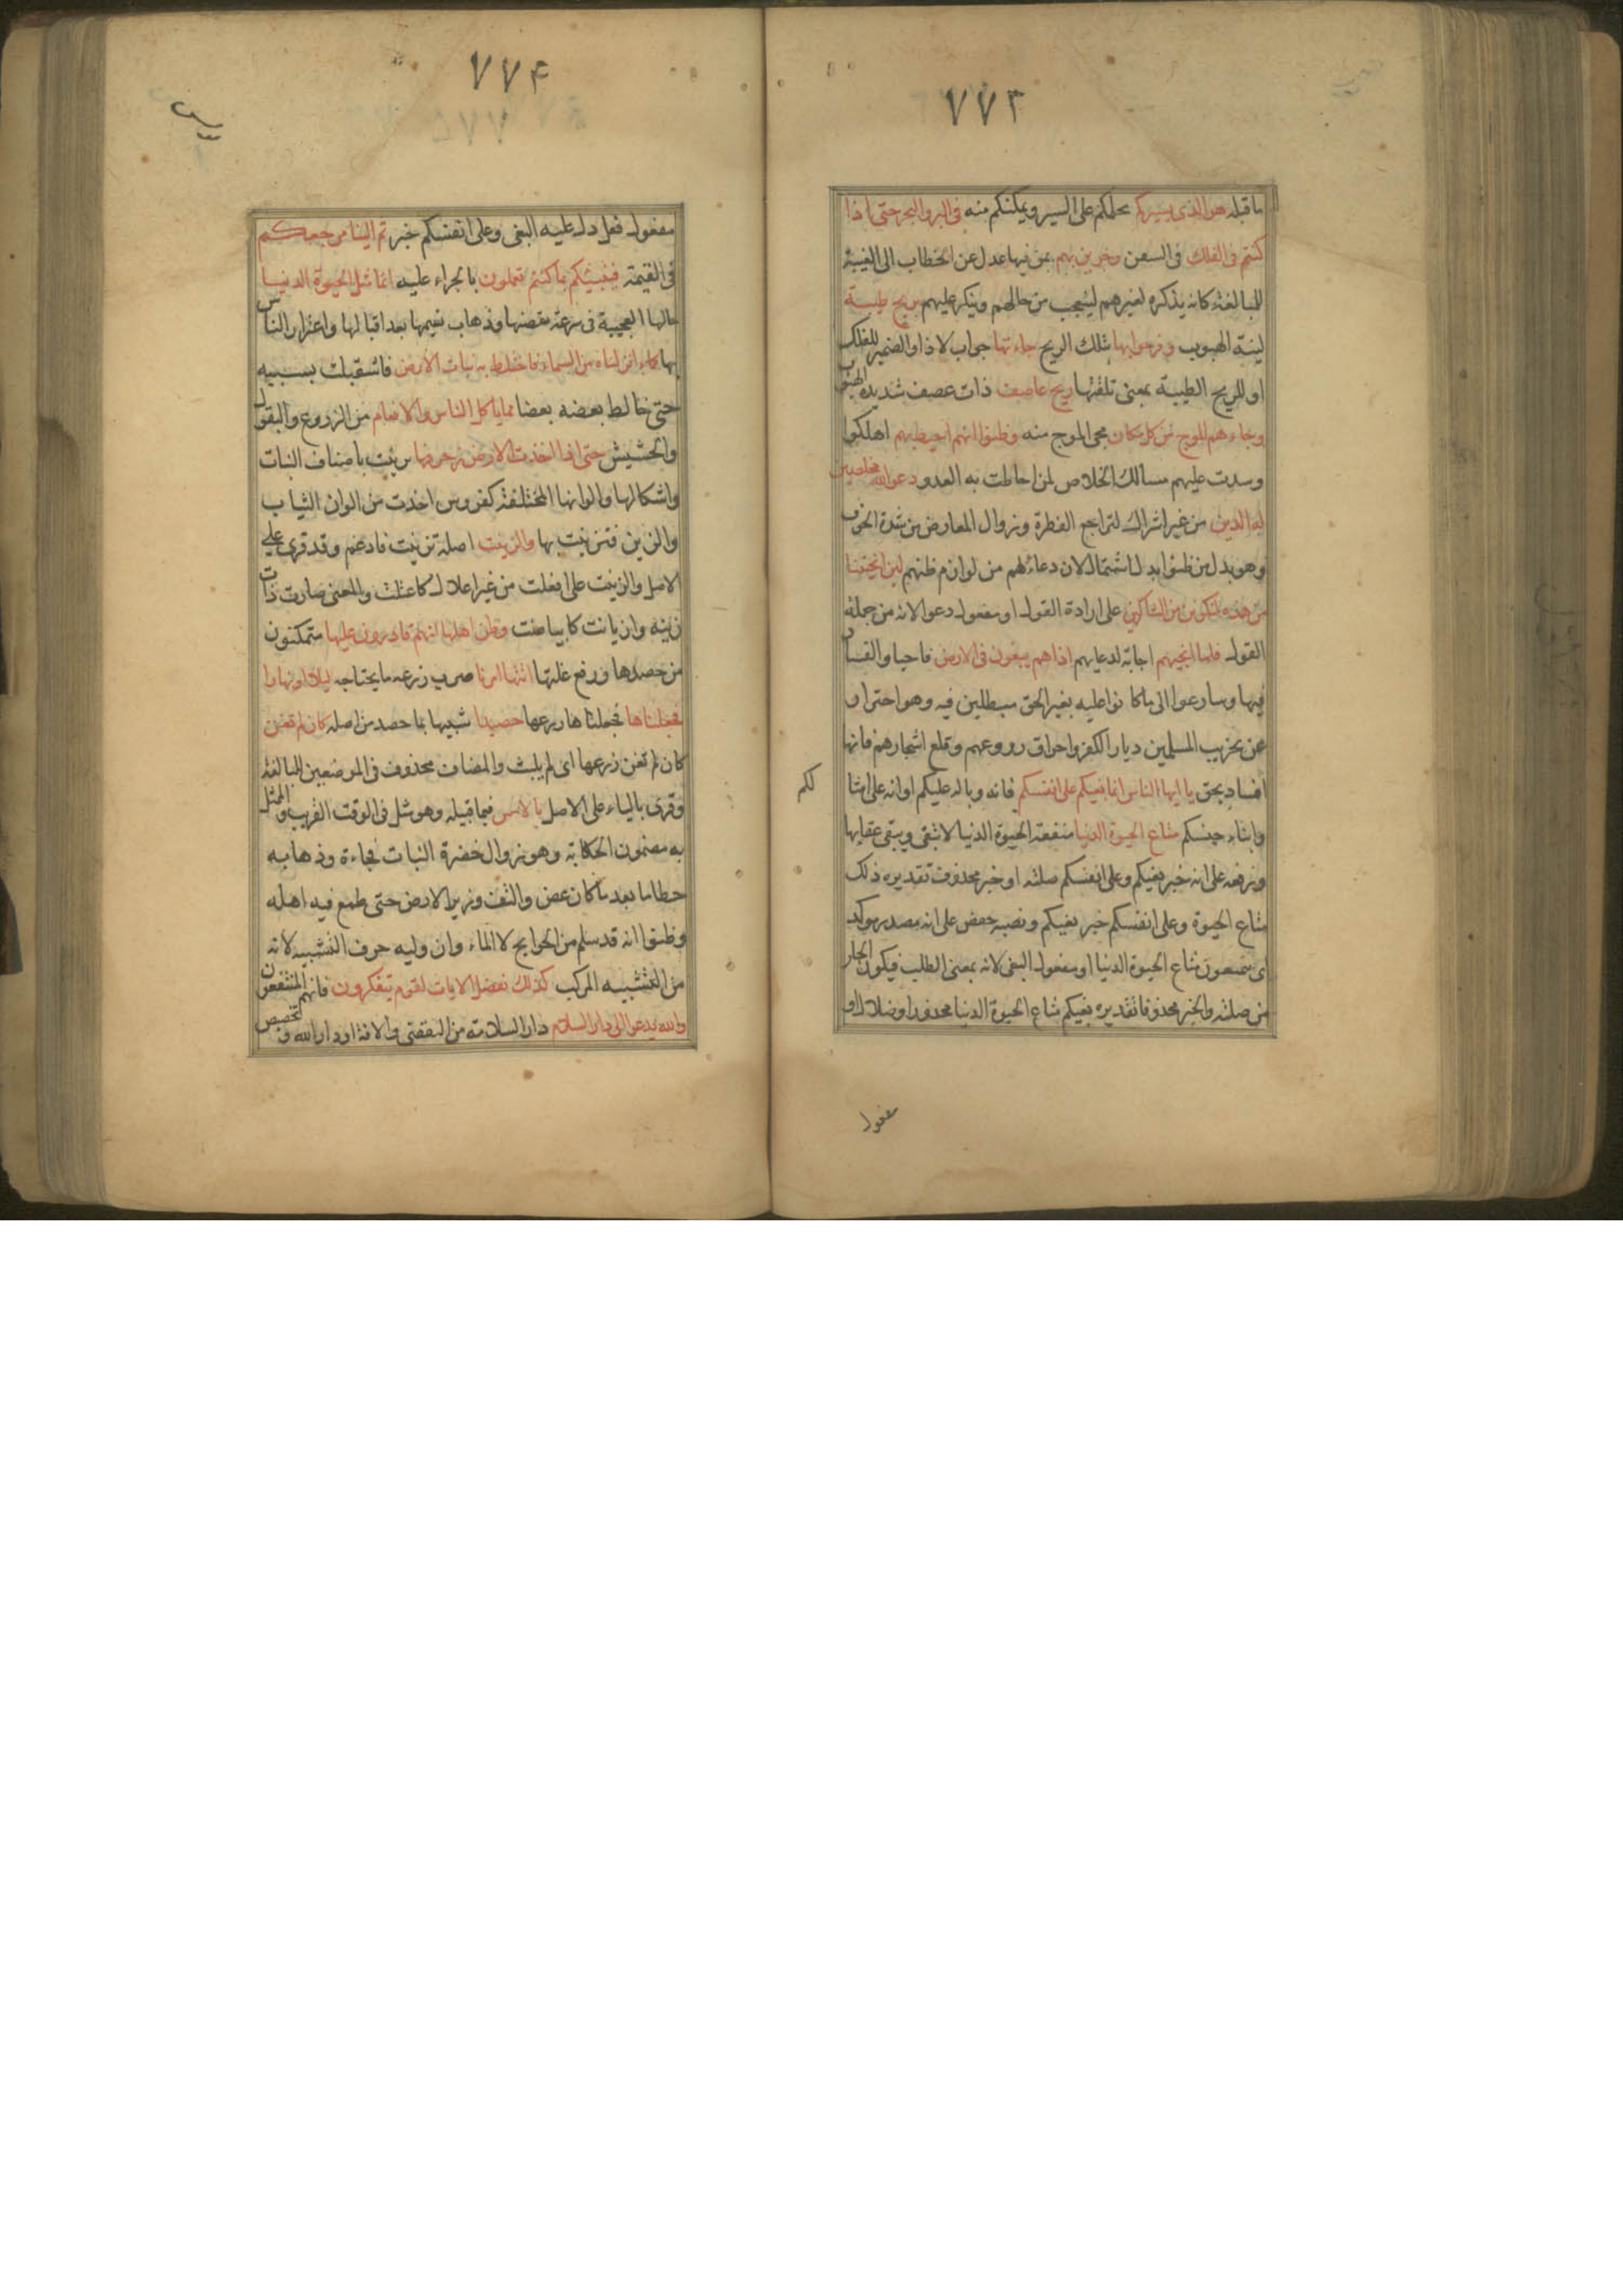 ٧٧٣
ما قبله هو الذى يسيركم يحملكم على السير ويمكنكم منه فى البر والبحر حتى اذا
كنتم فى الفلك فى السفن وجرين بهم بمن فيها عدل عن الخطاب الى الغيبة
للمبالغة كانه يذكره لغيرهم ليتعجب من حالهم وينكر عليهم بريح طيبة
لينة الهبوب وفرحوا بها بتلك الريح جاءتها جواب لاذا والضمير للفلك
او للريح الطيبة بمعنى تلقتها ريح عاصف ذات عصف شديدة الهبوب
وجاءهم الموج من كل مكان يجى الموج منه وظنوا انهم احيط بهم اهلكوا
وسدت عليهم مسالك الخلاص لمن احاطت به العدو دعوا الله مخلصين
له الدين من غير اشراك لتراجع الفطرة وزوال المعارض من شدة الخوف
وهو بدل من ظنوا بدل اشتمال لان دعاءهم من لوازم ظنهم لئن انجيتنا
من هذه لنكونن من الشاكرين على ارادة القول او مفعول دعوا لانه من جملة
القول فلما انجيهم اجابة لدعايهم اذا هم يبغون فى الارض فاجاوا الفساد
فيها وسارعوا الى ما كانوا عليه بغير الحق مبطلين فيه وهو احتراز
عن تخريب المسلمين ديار الكفرة واحراق زروعهم وقلع اشجارهم فانها
افساد بحق يا ايها الناس انما بغيكم على انفسكم فانه وباله عليكم او انه على امثا
لكم
وابناء جنسكم متاع الحيوة الدنيا منفعة الحيوة الدنيا لا تبقى ويبقى عقابها
ورفعه على انه خبر بغيكم وعلى انفسكم صلته او خبر محذوف تقديره ذلك
متاع الحيوة وعلى انفسكم خبر بغيكم ونصبه حفص على انه مصدر موكد
اى تتمتعون متاع الحيوة الدنيا او مفعول البغى لانه بمعنى الطلب فيكون الجار
من صلته والخبر محذوفا تقديره بغيكم متاع الحيوة الدنيا محذور او ضلال او
مفعول
٧٧۴
مفعول فعل دل عليه البغى وعلى انفسكم خبر ثم الينا مرجعكم
فى القيمة فينبئكم بما كنتم تعملون بالجزاء عليه انما مثل الحيوة الدنيا
حالها العجيبة فى سرعة تقضيها وذهاب نعيمها بعد اقبالها واغترار الناس
بها كماء انزلناه من السماء فاختلط به نبات الارض فاشتبك بسببه
حتى خالط بعضه بعضا مما ياكل الناس والانعام من الزروع والبقول
والحشيش حتى اذا اخذت الارض زخرفها تزينت باصناف النبات
واشكالها والوانها المختلفة كعروس اخذت من الوان الثياب
والزين فتزينت بها وازينت اصله تزينت فادغم وقد قرى على
الاصل وازينت على افعلت من غير اعلال كاغيلت والمعنى صارت ذات
زينة وازيانت كابياضت وظن اهلها انهم قادرون عليها متمكنون
من حصدها ورفع غلتها اتٮها امرنا ضرب زرعه ما يجتاحه ليلا او نهارا
فجعلناها فجعلنا زرعها حصيدا شبيها بما حصد من اصله كان لم تغن
كان لم تغن زرعها اى لم يلبث والمضاف محذوف فى الموضعين للمبالغة
وقرى بالياء على الاصل بالامس فيما قبيله وهو مثل فى الوقت القريب والممثل
به مضمون الحكاية وهو زوال خضرة النبات فجاءة وذهابه
حطاما بعد ما كان غض والتف وزين الارض حتى طمع فيه اهله
وظنوا انه قد سلم من الجوايح لا الماء وان وليه حرف التشبيه لانه
من التشبيه المركب كذلك نفصل الايات لقوم يتفكرون فانهم المنتفعون
والله يدعو الى دار السلام دار السلامة من التقضى والافة او دار الله وتخصيص